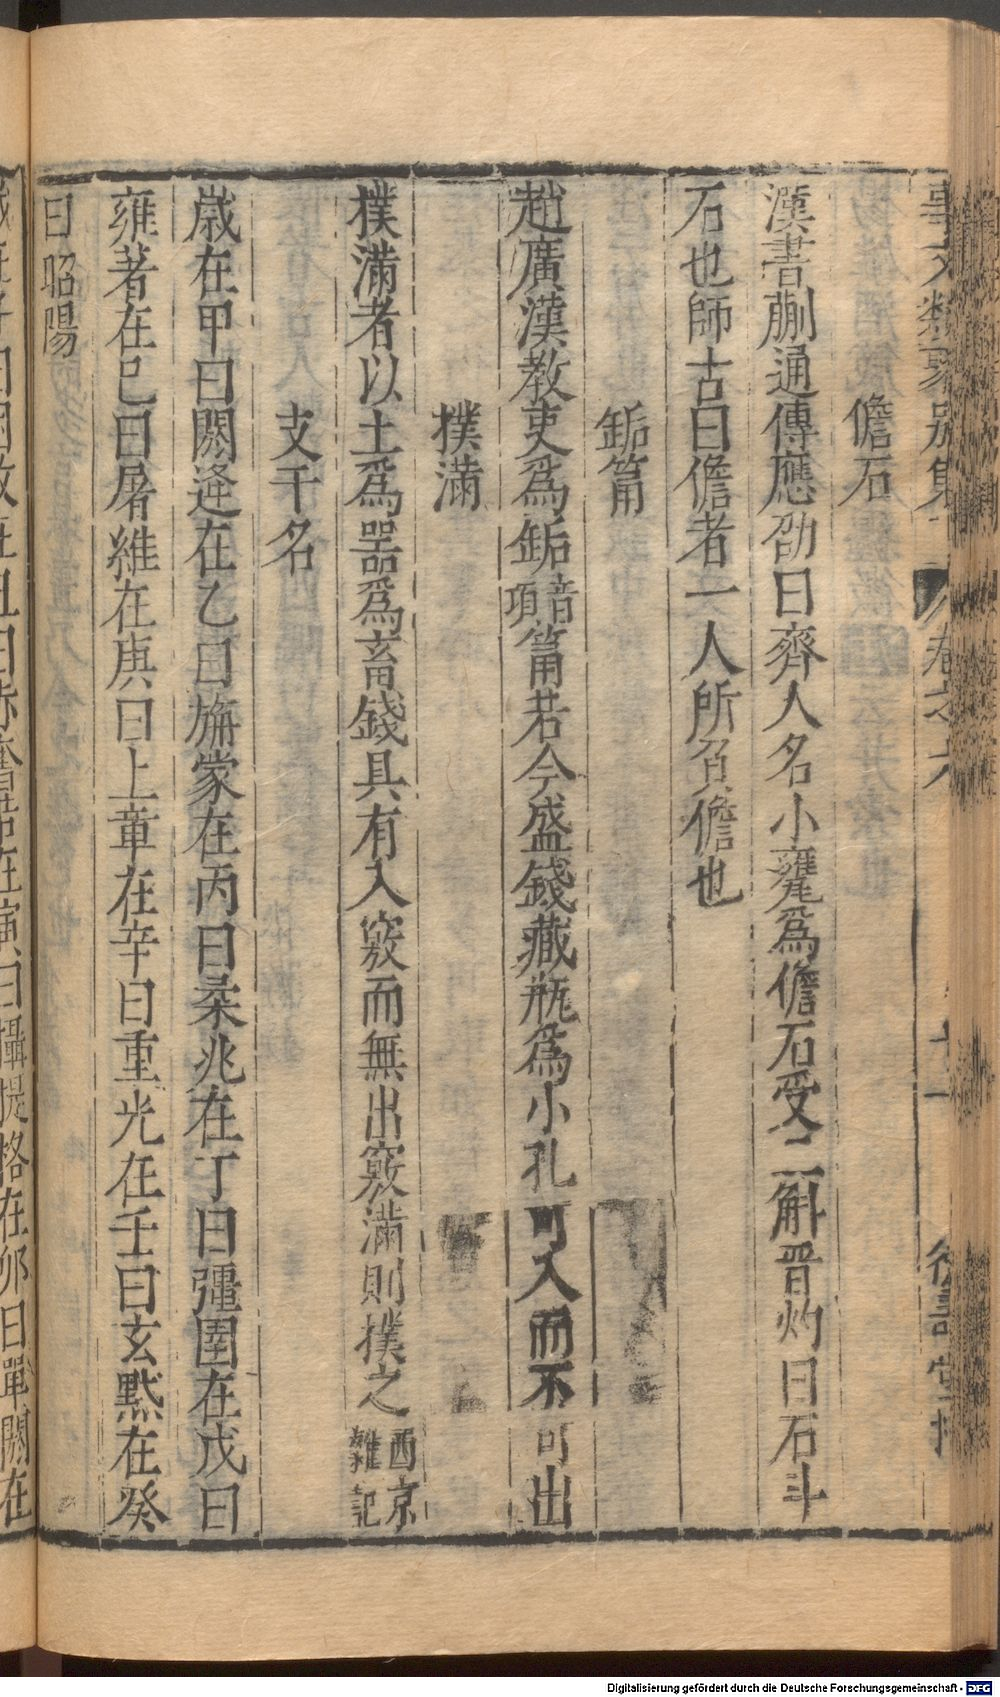 事文類聚別集 卷之六
儋石
漢書蒯通傳應劭曰齊人名小甖爲儋石受二斛晉灼曰石斗
石也師古曰儋者一人所負儋也
缿筩
趙廣漢教吏爲缿音項筩若今盛錢藏瓶爲小孔可入而不可出
撲滿
撲滿者以土爲器爲畜錢具有入竅而無出竅滿則撲之西京雜記
支干名
歲在甲曰閼逢在乙曰旃蒙在丙曰柔兆在丁曰彊圉在戊曰
雍著在巳曰屠維在庚曰上章在辛曰重光在壬曰玄黓在癸
曰昭陽
歲在子曰困敦在丑曰赤奮若在寅曰攝提格在卯曰單閼在
Digitalisierung gefördert durch die Deutsche Forschungsgemeinschaft - DFG